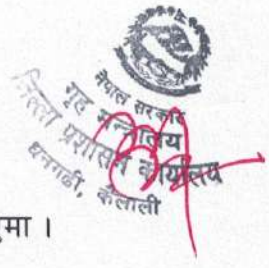 नेपाल सरकार
गृह मन्त्रालय
जिल्ला प्रशासन कार्यालय
धनगढी, कैलाली
मा ।